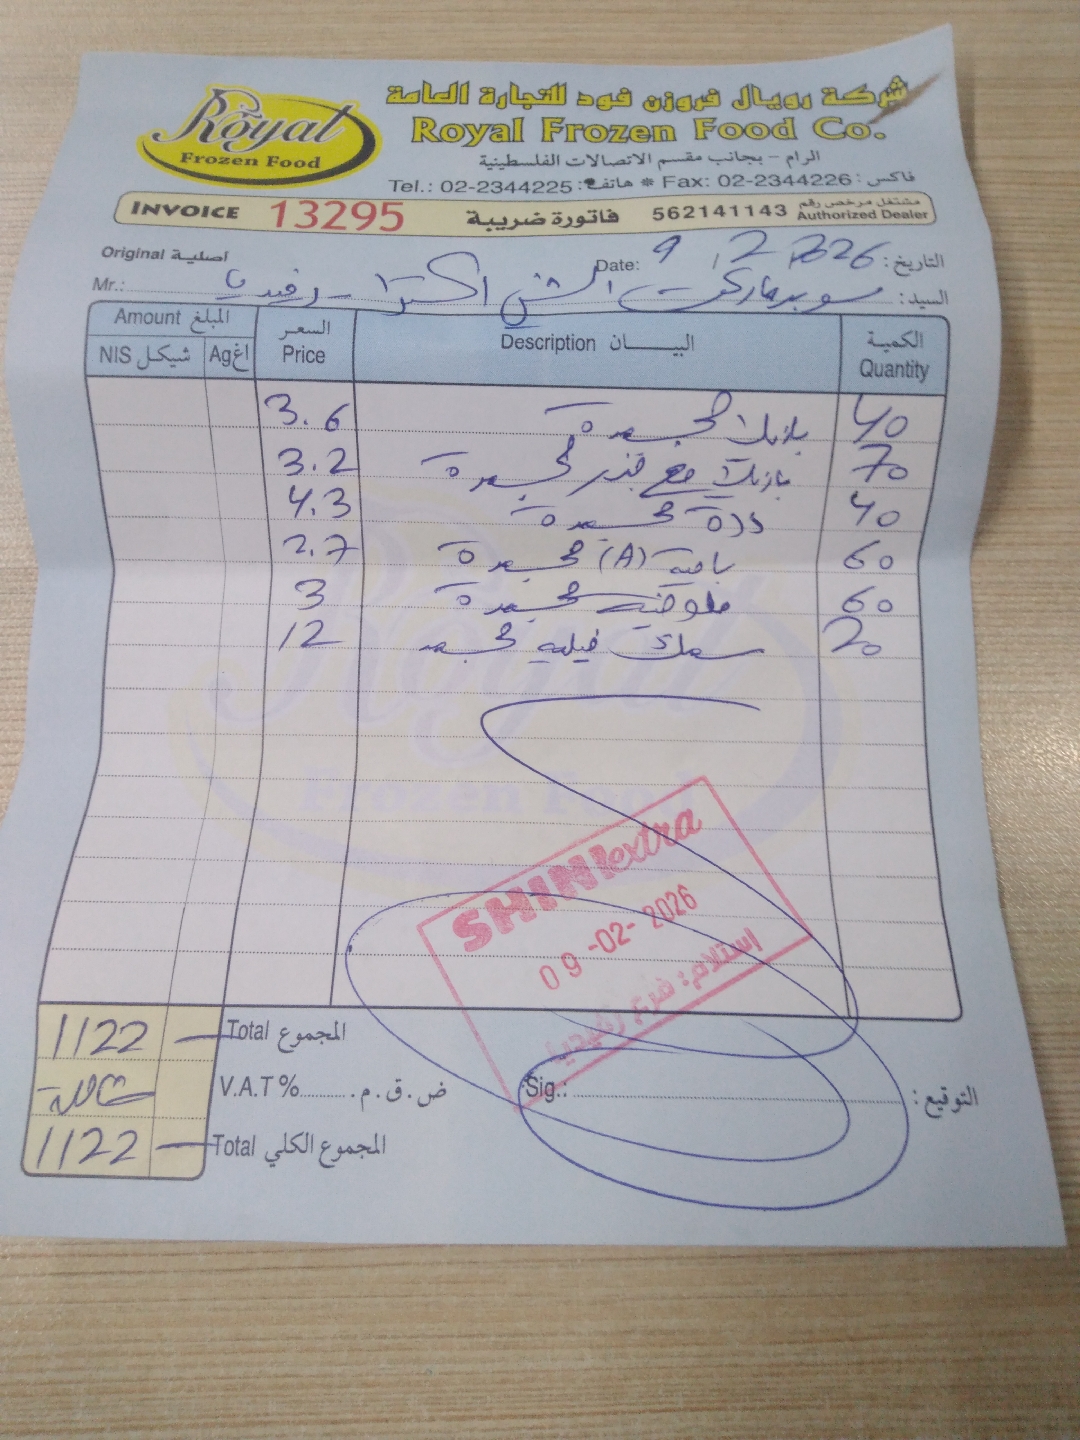 Royal
Frozen Food
شركة رويال فروزن فود للتجارة العامة
Royal Frozen Food Co.
الرام - بجانب مقسم الاتصالات الفلسطينية
Tel.: 02-2344225 :هاتف * Fax: 02-2344226 :فاكس
INVOICE 13295 فاتورة ضريبة 562141143 مشتغل مرخص رقم Authorized Dealer
Original اصلية
Date: 9 , 2 , 2026 التاريخ:
Mr.: سوبرماركت الشني اكسترا - رفيديا السيد:
Amount المبلغ السعر Price Description البيـــــان الكمية Quantity
NIS شيكل Ag اغ
3.6 بازيلا مجمدة 40
3.2 بازيلا مع جزر مجمدة 70
4.3 ذرة مجمدة 40
2.7 بامية (A) مجمدة 60
3 ملوخية مجمدة 60
12 سمك فيليه مجمد 20
SHINI extra
09-02-2026
إستلام: فرع رفيديا
1122 Total المجموع
شاملة V.A.T % ض.ق.م.
1122 Total المجموع الكلي
Sig.: التوقيع: